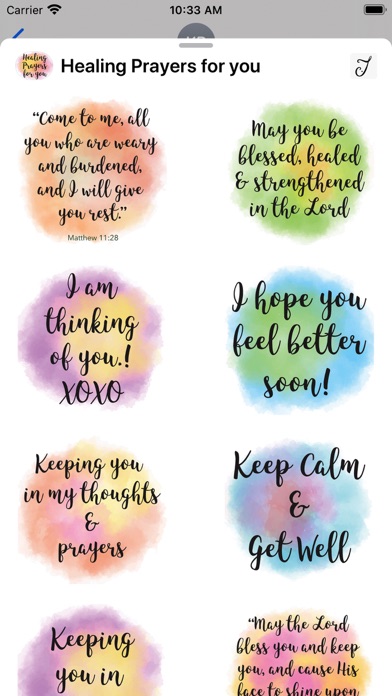 Carrier 10:33 AM
Healing
Prayers
for you
Healing Prayers for you
J
"Come to me, all
you who are weary
and burdened,
and I will give
you rest."
Matthew 11:28
May you be
blessed, healed
& strengthened
in the Lord
I am
thinking
of you.!
XOXO
I hope you
feel better
soon!
Keeping you
in my thoughts
&
prayers
Keep Calm
&
Get Well
Keeping
you in
"May the Lord
bless you and keep
you, and cause His
face to shine upon